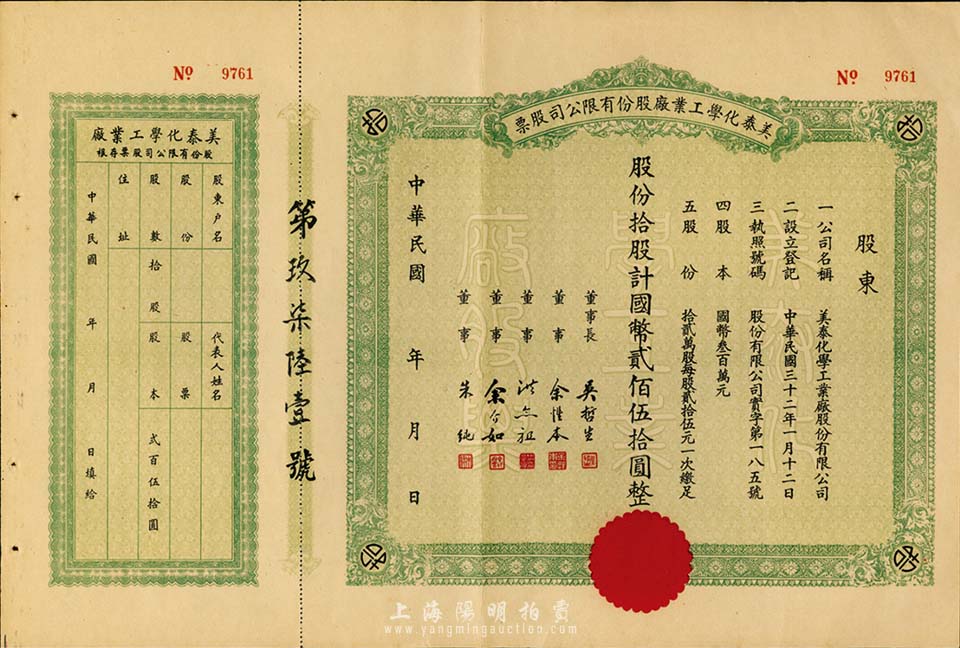 № 9761
美泰化學工業廠股份有限公司股票
股東
一公司名稱 美泰化學工業廠股份有限公司
二設立登記 中華民國三十二年一月十二日
三執照號碼 股份有限公司實字第一八五號
四股本 國幣叁百萬元
五股份 拾貳萬股每股貳拾伍元一次繳足
股份拾股計國幣貳佰伍拾圓整
董事長
董事 余性本
董事
董事
董事 朱純
中華民國 年 月 日
第玖柒陸壹號
№ 9761
美泰化學工業廠
股份有限公司股票存根
股東戶名 代表人姓名
股份 股票
股數 拾股 股本 弍百伍拾圓
住址
中華民國 年 月 日填給
上海陽明拍賣
www.yangmingauction.com